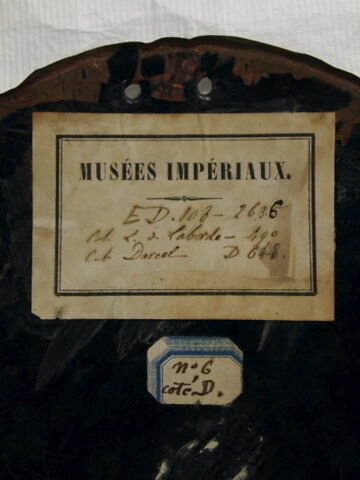 MUSÉES IMPÉRIAUX.
ED. 108 - 2636
Cat L. de Laborde - 490
Cat. Darcel D 648.
nº 6
coté D.